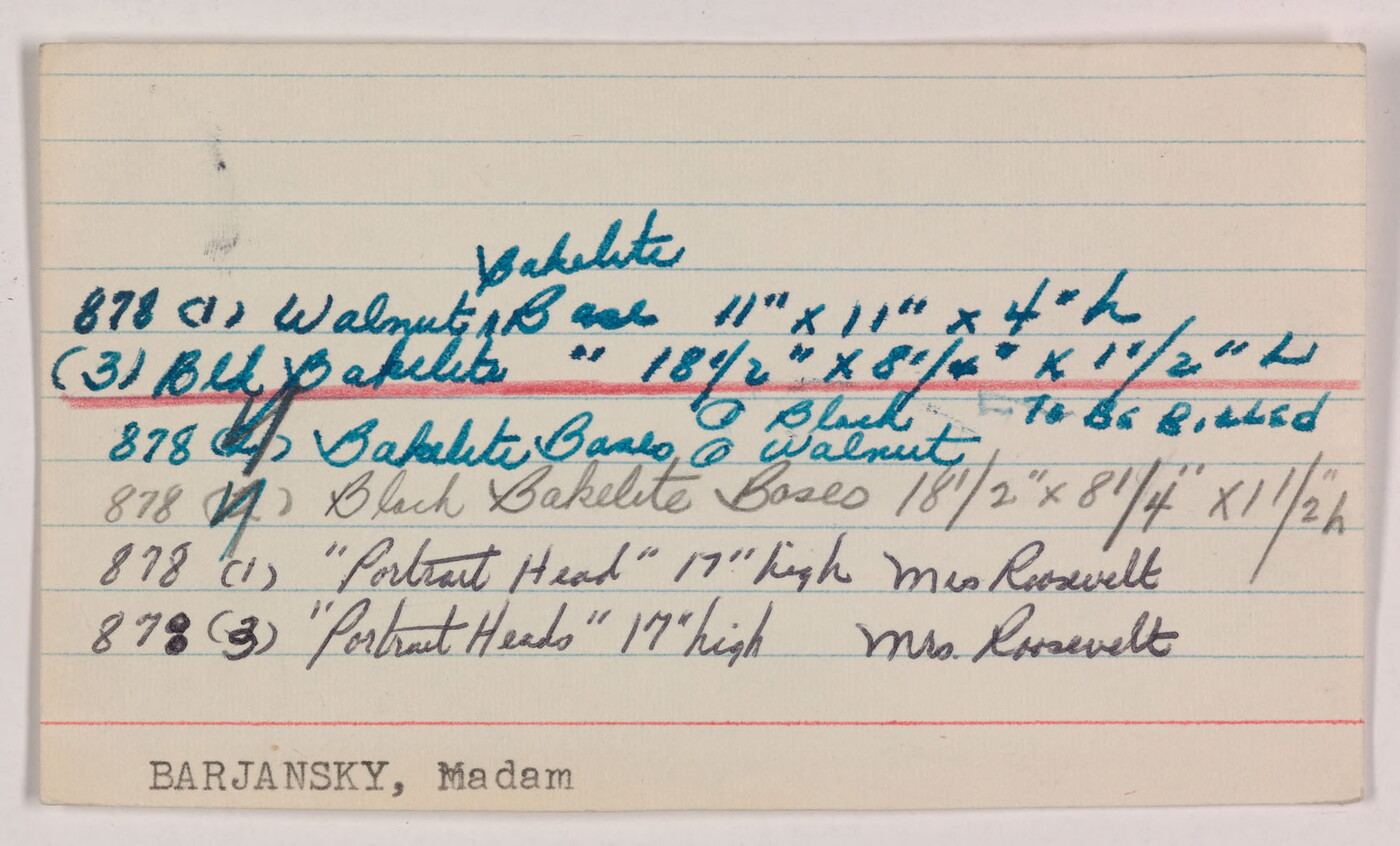 Bakelite
878 (1) Walnut Base 11" x 11" x 4" h
(3) Blk Bakelite " 18 1/2" x 8 1/4" x 1 1/2" h
① Black To Be Billed
878 Bakelite Bases ① Walnut
878 Black Bakelite Bases 18 1/2" x 8 1/4" x 1 1/2" h
878 (1) "Portrait Head" 17" high Mrs Roosevelt
878 (3) "Portrait Heads" 17" high Mrs. Roosevelt
BARJANSKY, Madam